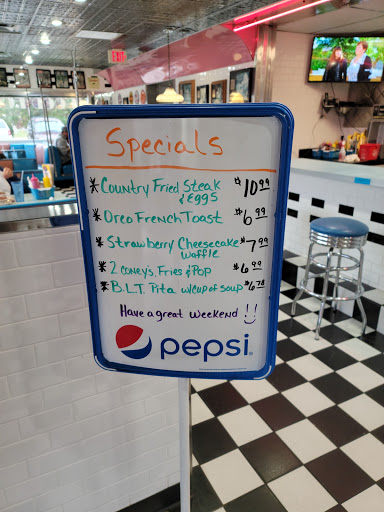 EXIT
Specials
* Country Fried Steak $10.99
& EGGS
* Oreo French Toast $6.99
* Strawberry Cheesecake $7.99
Waffle
* 2 coney's, Fries & Pop $6.99
* B.L.T. Pita w/cup of soup $6.78
Have a great weekend!!
pepsi